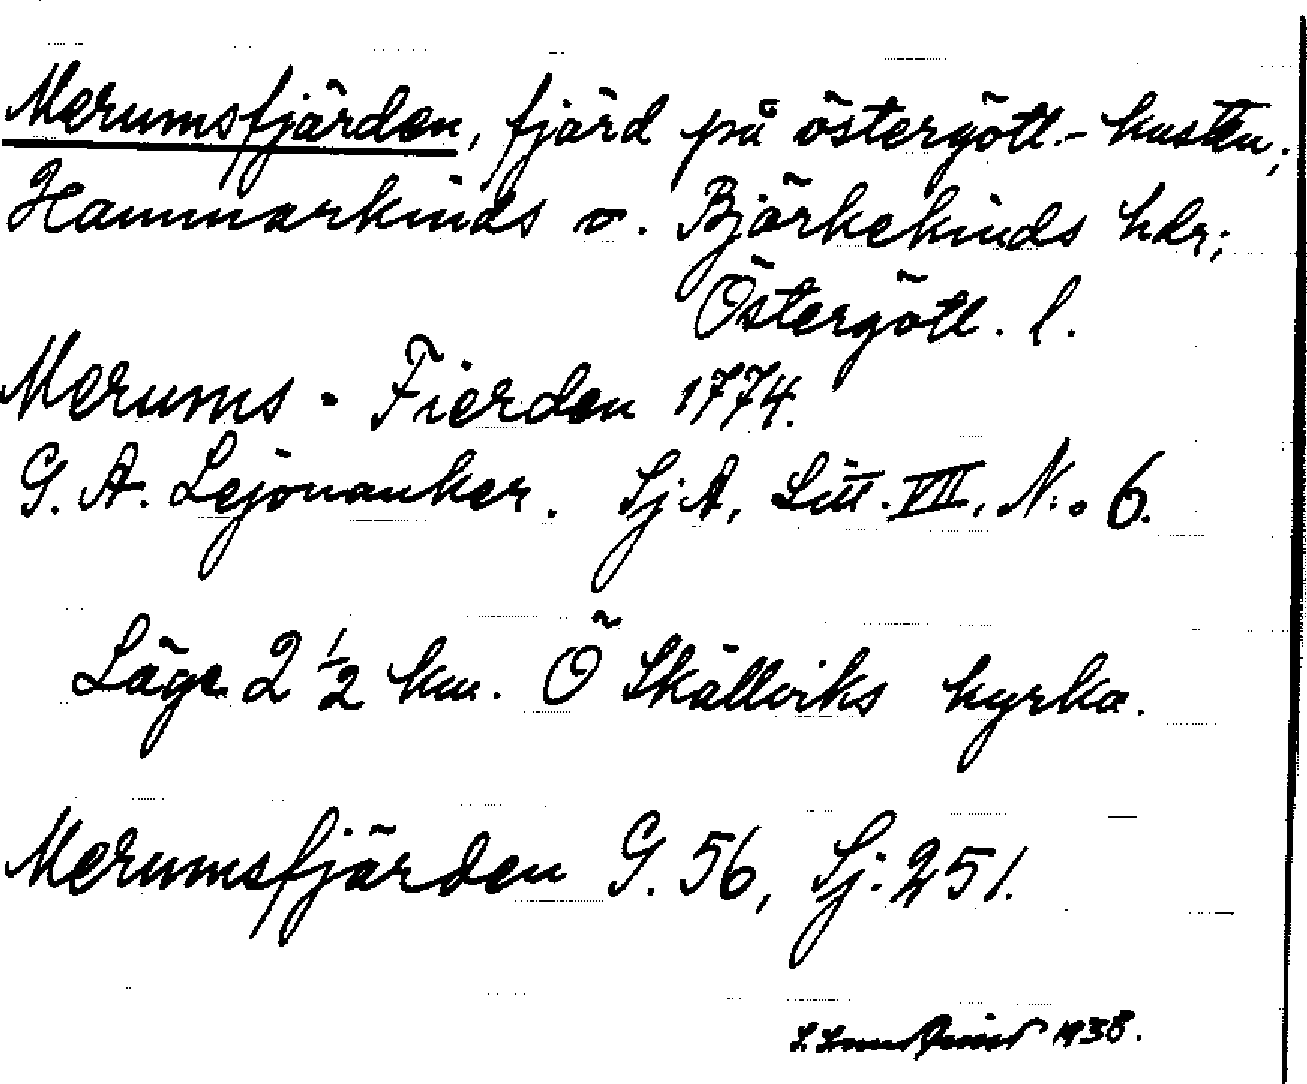 Merumsfjärden, fjärd på östergötl.-kusten;
Hammarkinds o. Björkekinds hdr;
Östergötl. l.
Merums - Fierden 1774.
G. A. Lejonanker. Sj. A, Litt. VII, N:o 6.
Läge 2 1/2 km. Ö Skällviks kyrka.
Merumsfjärden G. 56, Sj. 251.
1938.